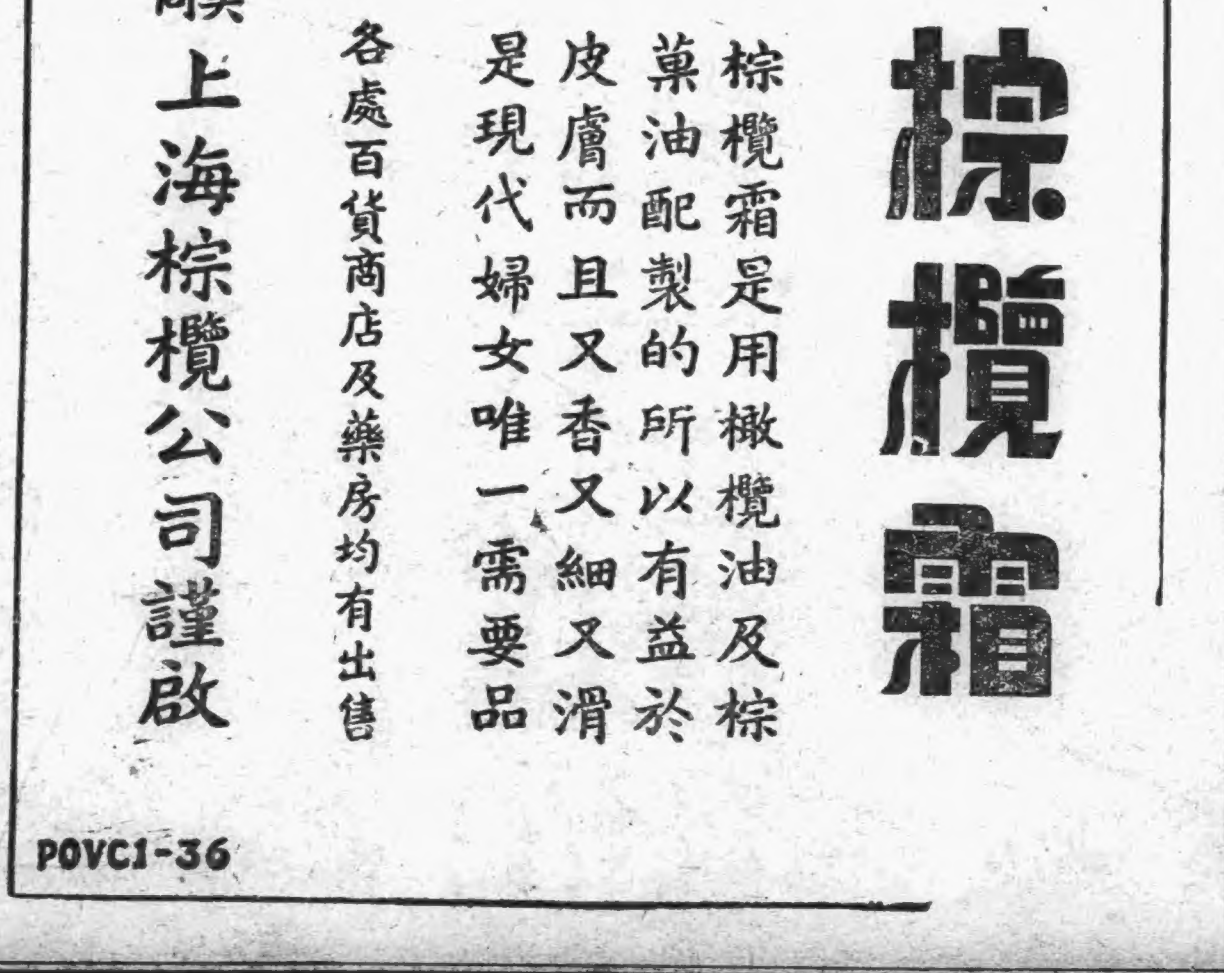 棕欖霜
棕欖霜是用橄欖油及棕
菓油配製的所以有益於
皮膚而且又香又細又滑
是現代婦女唯一需要品
各處百貨商店及藥房均有出售
上海棕欖公司謹啟
POVC1-36